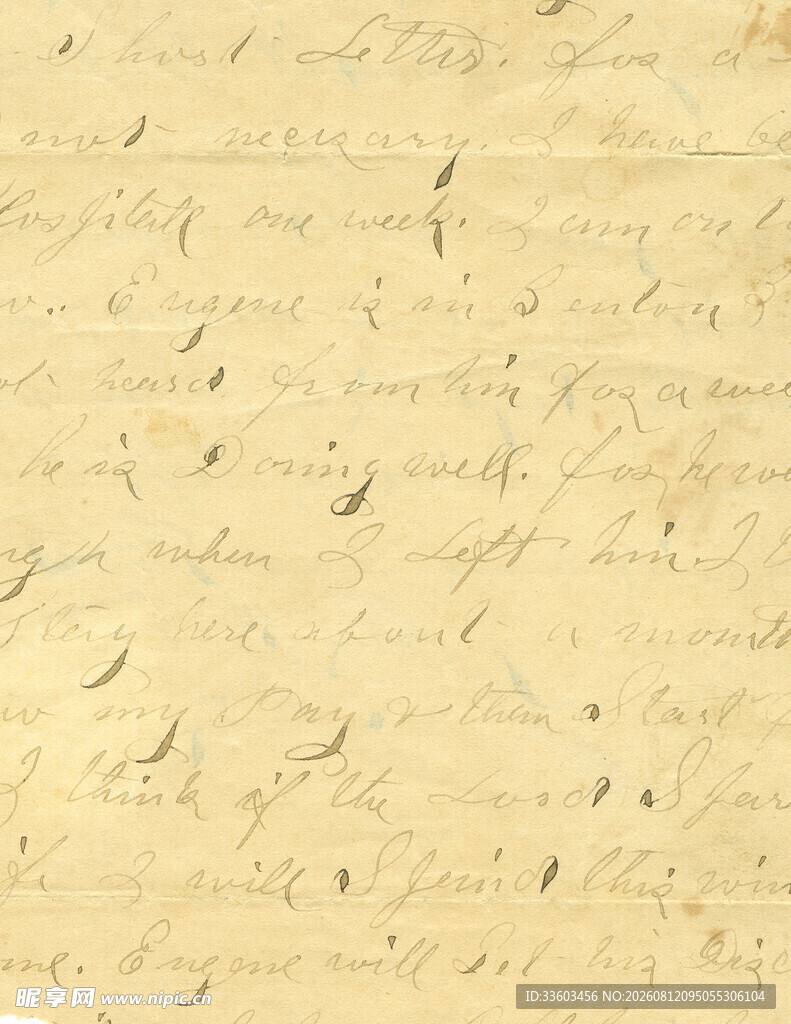 Short Letter. for a
not necesary. I have be
Hospitale one week. I am on
Eugene is in Benton I
heard from him for a wee
he is Doring well. for he wa
when I Left him. I
Stay here about a month
my Pay & then Start
I think if the Lord Spar
I will Speind this win
me. Eugene will Get his Disc
昵享网 www.nipic.cn
ID:33603456 NO:20260812095055306104